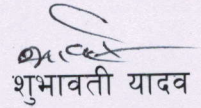 शुभावती यादव